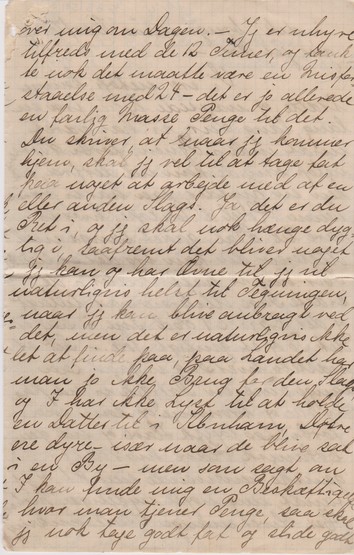 over mig om Dagen. — Jeg er uhyre
tilfreds med de 12 Timer, og tænk
te nok det maatte være en Misfor
staaelse med 24 — det er jo allerede
en farlig Masse Penge til det.
Du skriver, at naar jeg kommer
hjem, skal jeg vel til at tage fat
paa noget at arbejde med af en
eller anden Slags. Ja, det er du
Ret i, og jeg skal nok hænge dyg
tig i, saafremt det bliver noget
jeg kan og har Evne til, jeg vil
naturligvis helst til Tegningen,
naar jeg kan blive anbragt ved
det, men det er naturligvis ikke
let at finde paa, paa Landet har
man jo ikke Brug for den Slags
og I har ikke Lyst til at holde
en Datter til i Kbenhavn, Døtre
ere dyre — især naar de blive sat
i en By — men som sagt, om
I kan finde mig en Beskæftigel
hvor man tjener Penge, saa skal
jeg nok tage godt fat og slide godt